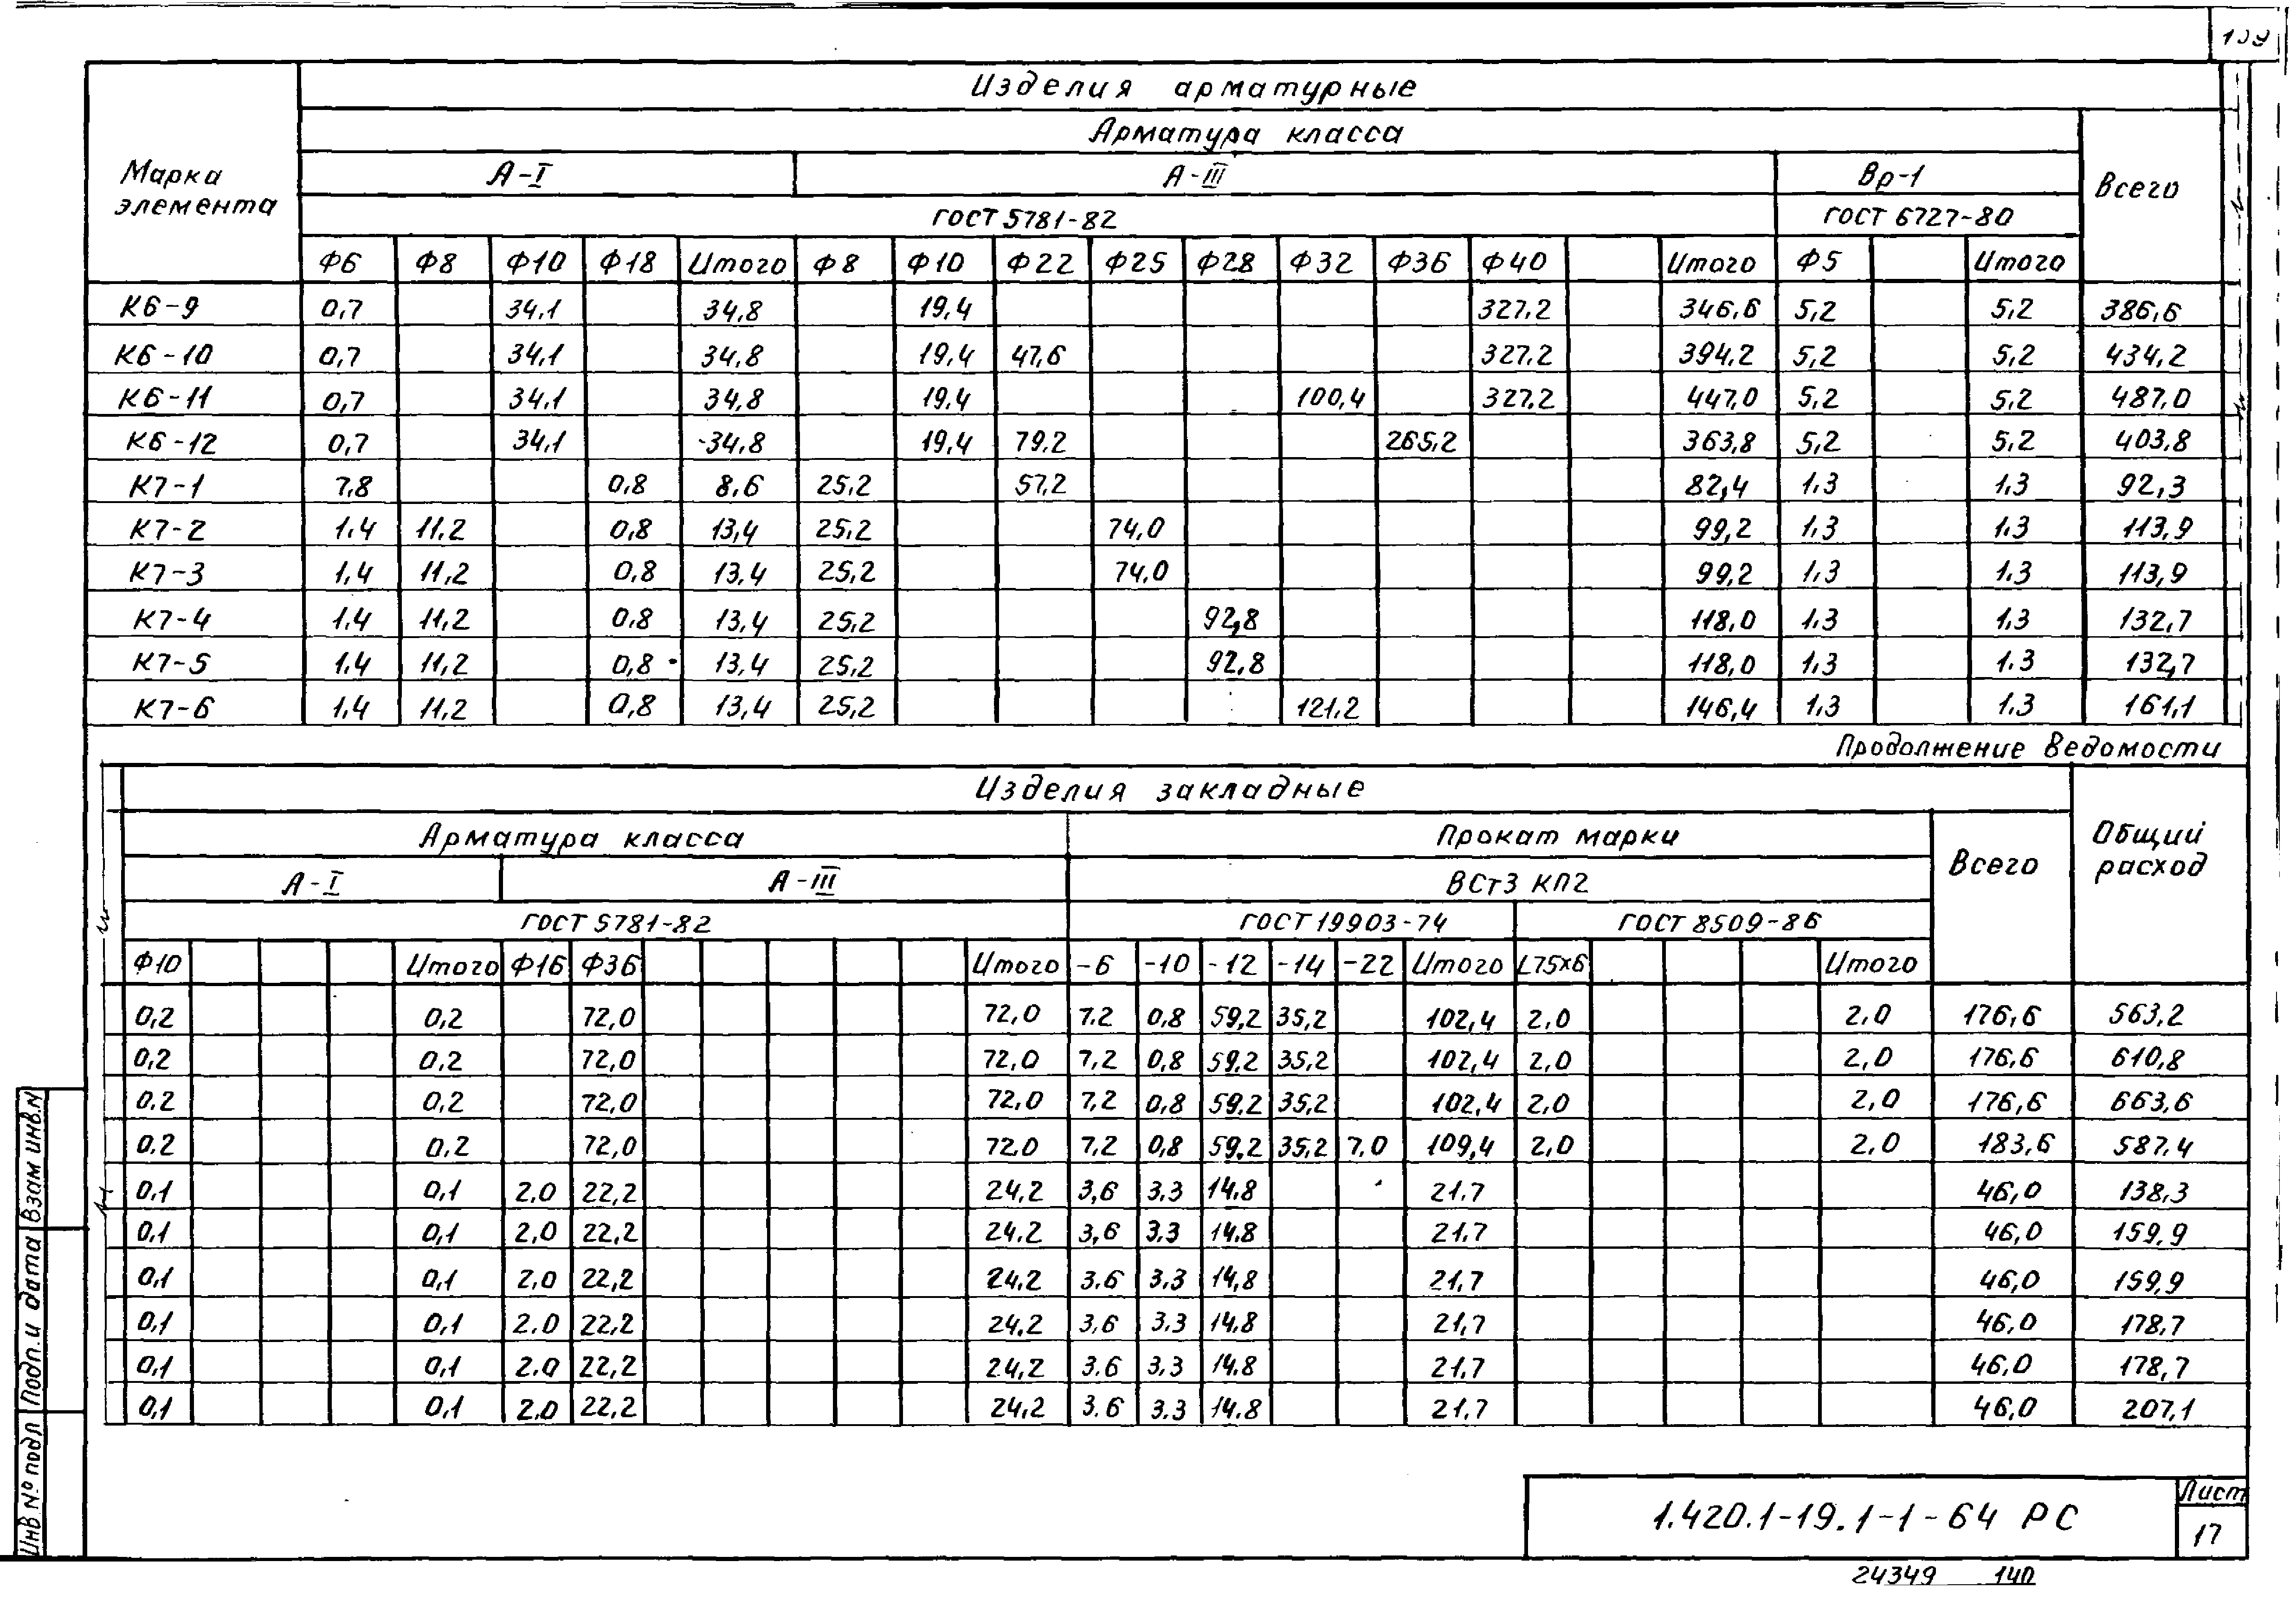 139
Изделия арматурные
Арматура класса
Марка элемента A-I A-III Вр-1 Всего
ГОСТ 5781-82 ГОСТ 6727-80
Ф6 Ф8 Ф10 Ф18 Итого Ф8 Ф10 Ф22 Ф25 Ф28 Ф32 Ф36 Ф40 Итого Ф5 Итого
К6-9 0,7 34,1 34,8 19,4 327,2 346,6 5,2 5,2 386,6
К6-10 0,7 34,1 34,8 19,4 47,6 327,2 394,2 5,2 5,2 434,2
К6-11 0,7 34,1 34,8 19,4 100,4 327,2 447,0 5,2 5,2 487,0
К6-12 0,7 34,1 34,8 19,4 79,2 265,2 363,8 5,2 5,2 403,8
К7-1 7,8 0,8 8,6 25,2 57,2 82,4 1,3 1,3 92,3
К7-2 1,4 11,2 0,8 13,4 25,2 74,0 99,2 1,3 1,3 113,9
К7-3 1,4 11,2 0,8 13,4 25,2 74,0 99,2 1,3 1,3 113,9
К7-4 1,4 11,2 0,8 13,4 25,2 92,8 118,0 1,3 1,3 132,7
К7-5 1,4 11,2 0,8 13,4 25,2 92,8 118,0 1,3 1,3 132,7
К7-6 1,4 11,2 0,8 13,4 25,2 121,2 146,4 1,3 1,3 161,1
Продолжение ведомости
Изделия закладные
Арматура класса Прокат марки Всего Общий расход
A-I A-III ВСт3 КП2
ГОСТ 5781-82 ГОСТ 19903-74 ГОСТ 8509-86
Ф10 Итого Ф16 Ф36 Итого -6 -10 -12 -14 -22 Итого L75x6 Итого
0,2 0,2 72,0 72,0 7,2 0,8 59,2 35,2 102,4 2,0 2,0 176,6 563,2
0,2 0,2 72,0 72,0 7,2 0,8 59,2 35,2 102,4 2,0 2,0 176,6 610,8
0,2 0,2 72,0 72,0 7,2 0,8 59,2 35,2 102,4 2,0 2,0 176,6 663,6
0,2 0,2 72,0 72,0 7,2 0,8 59,2 35,2 7,0 109,4 2,0 2,0 183,6 587,4
0,1 0,1 2,0 22,2 24,2 3,6 3,3 14,8 21,7 46,0 138,3
0,1 0,1 2,0 22,2 24,2 3,6 3,3 14,8 21,7 46,0 159,9
0,1 0,1 2,0 22,2 24,2 3,6 3,3 14,8 21,7 46,0 159,9
0,1 0,1 2,0 22,2 24,2 3,6 3,3 14,8 21,7 46,0 178,7
0,1 0,1 2,0 22,2 24,2 3,6 3,3 14,8 21,7 46,0 178,7
0,1 0,1 2,0 22,2 24,2 3,6 3,3 14,8 21,7 46,0 207,1
Инв № подл Подп. и дата Взам инв.N
1.420.1-19.1-1-64 РС
Лист
17
24349 140